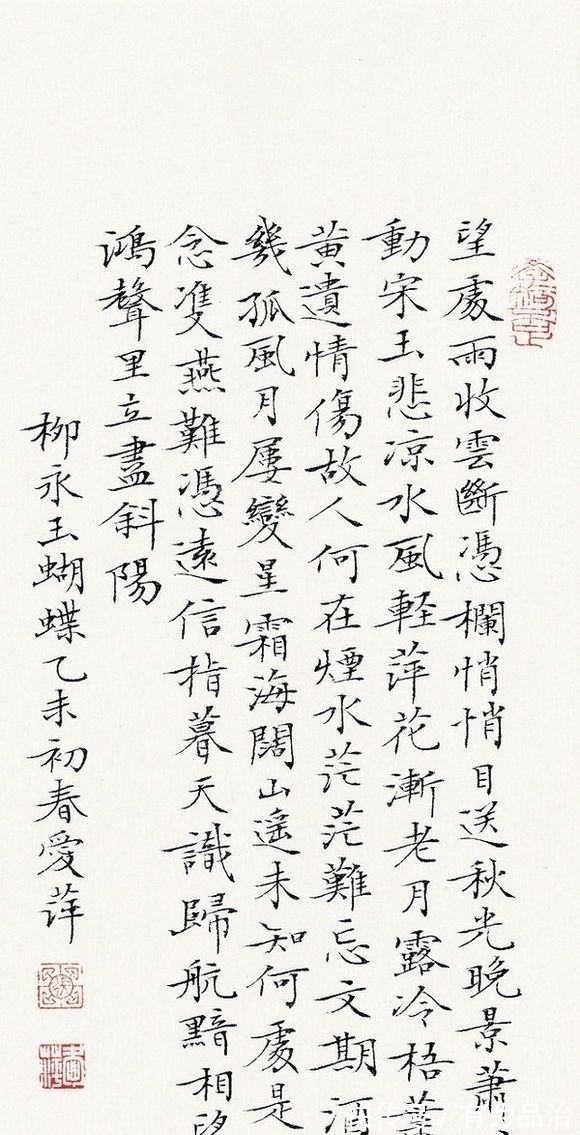 望處雨收雲斷憑欄悄悄目送秋光晚景蕭
動宋玉悲凉水風軽萍花漸老月露冷梧葉
黃遣情傷故人何在煙水茫茫難忘文期酒
幾孤風月屢變星霜海闊山遥未知何處是
念雙燕難憑遠信指暮天識歸航黯相望
鴻聲里立盡斜陽
柳永玉蝴蝶乙未初春愛萍
快传号 /